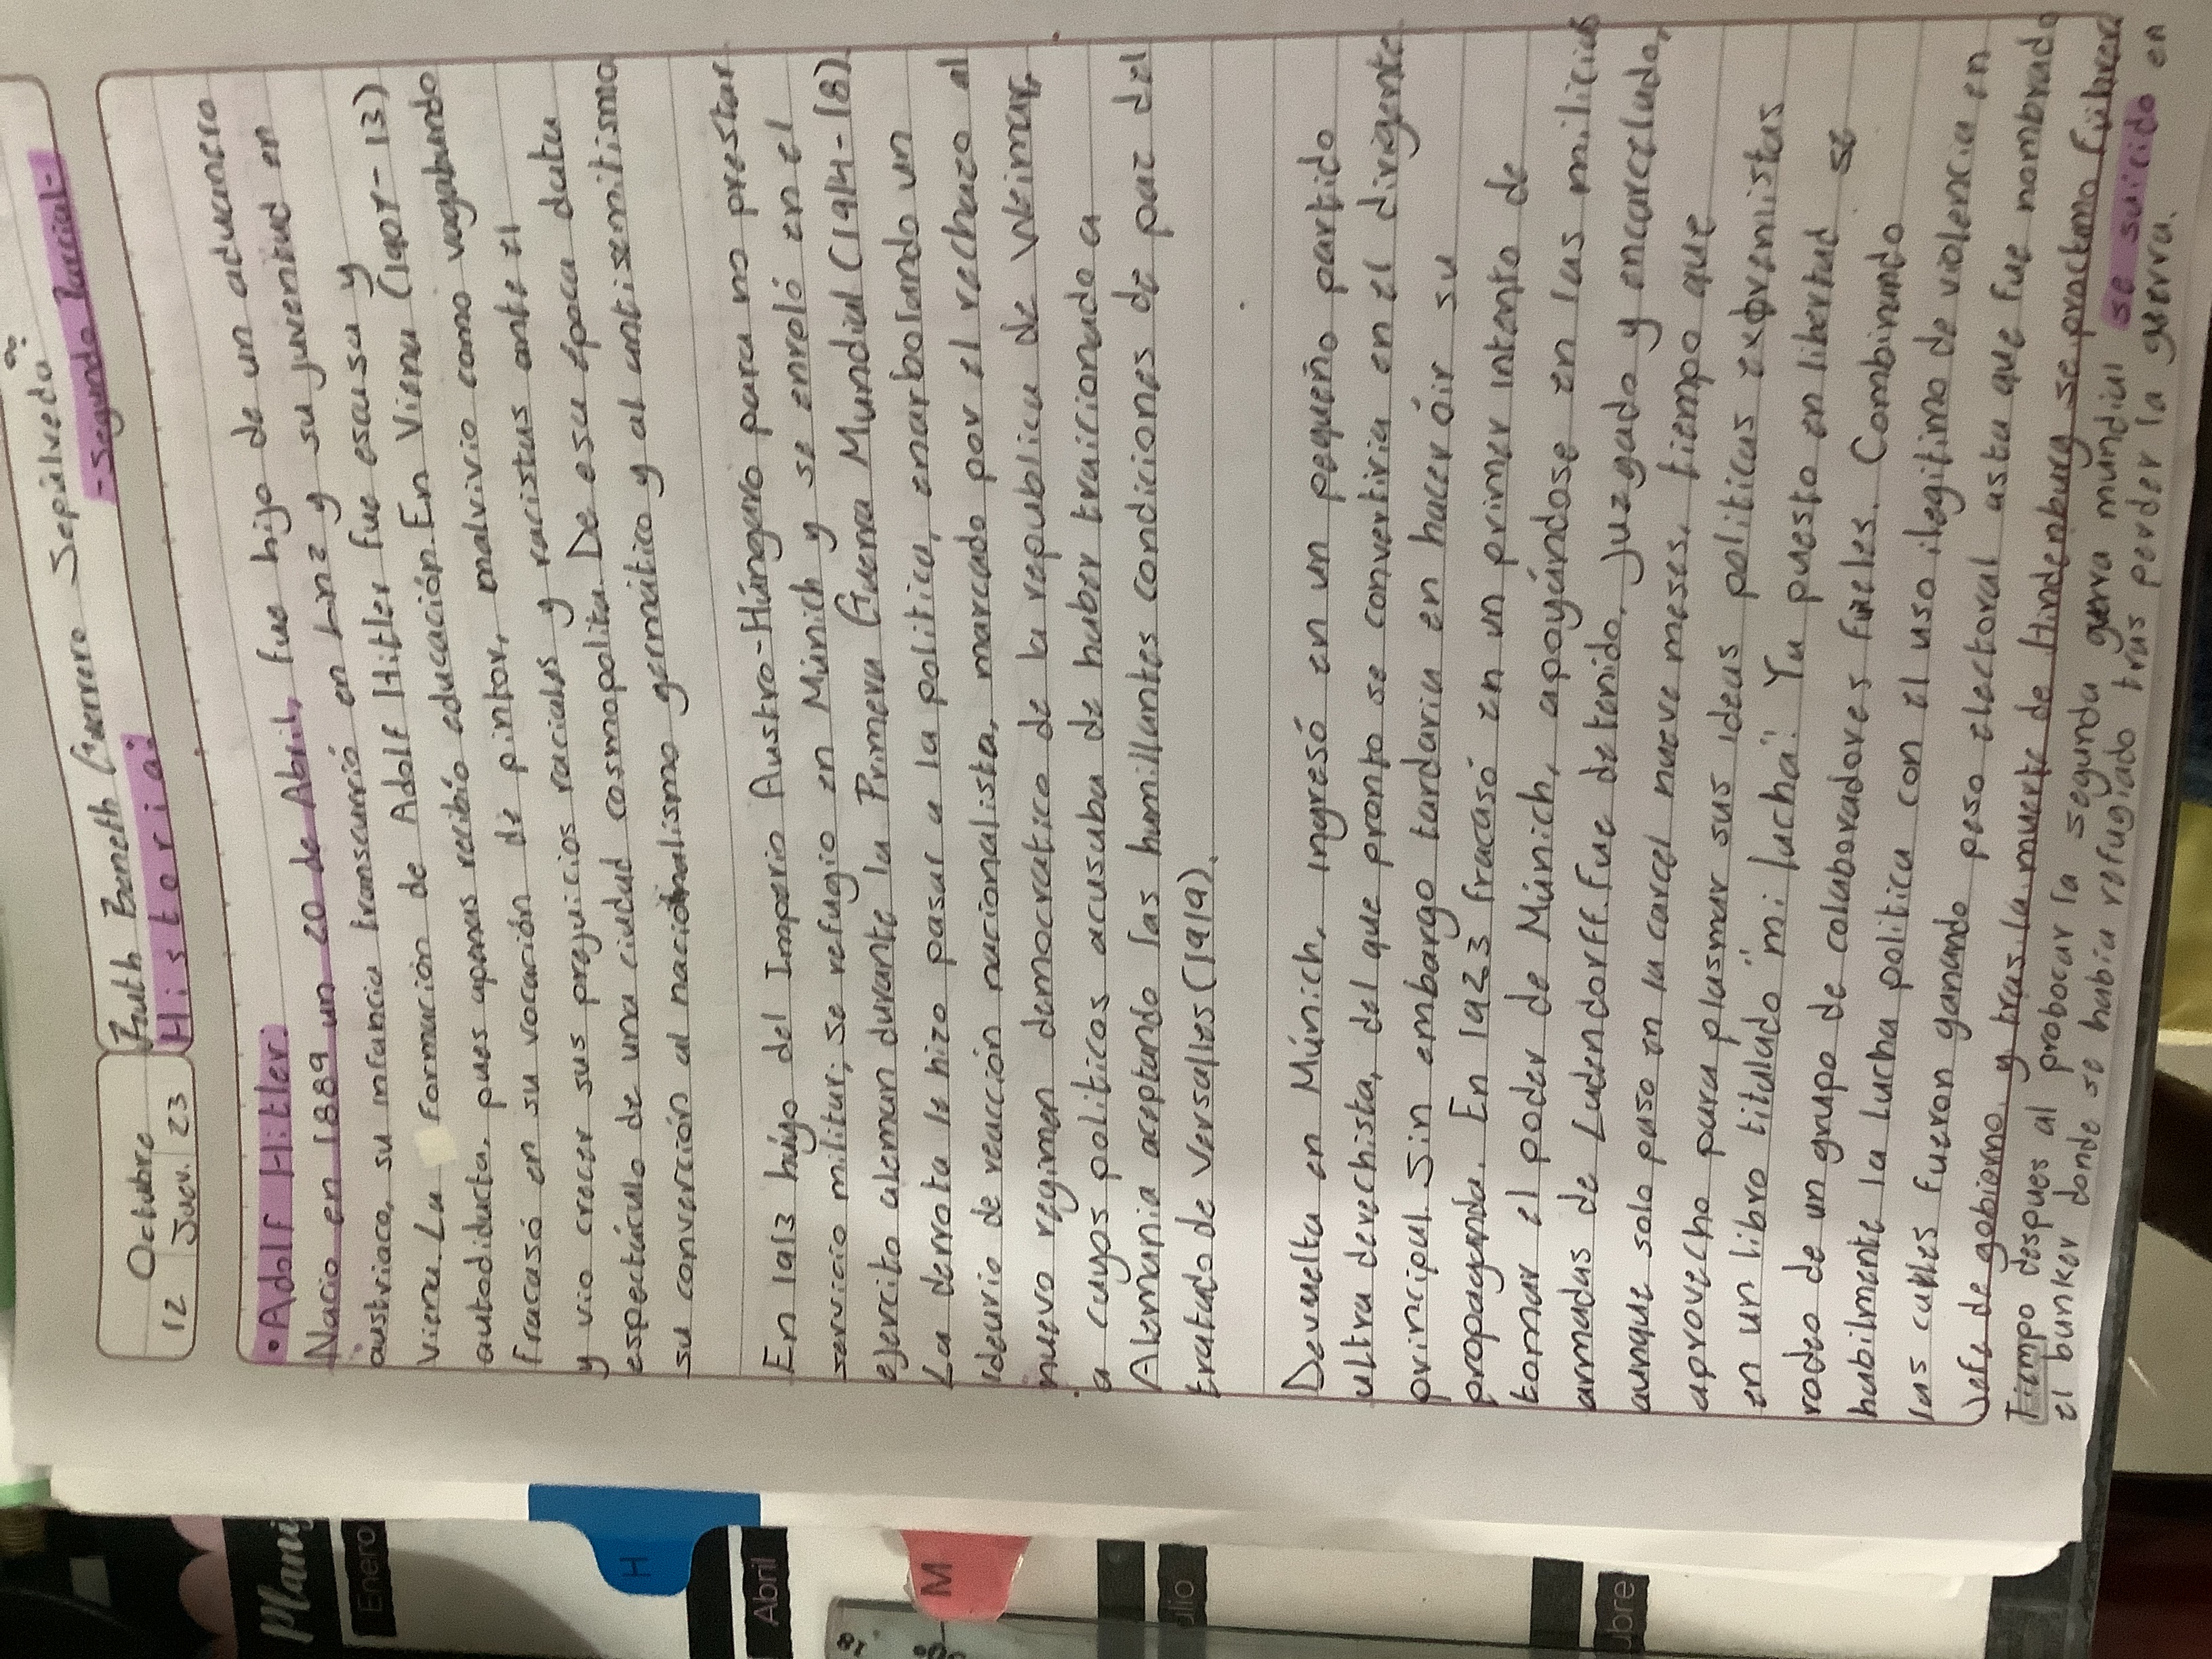 Octubre
12 Juev. 23
Beneth Guerrero Sepúlveda
Historia:
- Segundo Parcial -
• Adolf Hitler.
Nacio en 1889 un 20 de Abril, fue hijo de un aduanero
austriaco, su infancia transcurrió en Linz y su juventud en
Viena. La formación de Adolf Hitler fue escasa y
autodidacta, pues apenas recibió educación. En Viena (1907-13)
fracasó en su vocación de pintor, malvivio como vagabundo
y vio crecer sus prejuicios raciales y racistas ante el
espectáculo de una ciudad cosmopolita. De esa época data
su converción al nacionalismo germático y al antisemitismo
En 1913 húyo del Imperio Austro-Húngaro para no prestar
servicio militar; se refugio en Múnich y se enroló en el
ejercito aleman durante la Primera Guerra Mundial (1914-18)
La derrota le hizo pasar a la politica, enarbolando un
ideario de reacción nacionalista, marcado por el rechazo al
nuevo regimen democratico de la republica de Weimar,
a cuyos politicos acusaba de haber traicionado a
Alemania aceptando las humillantes condiciones de paz del
tratado de Versalles (1919).
Devuelta en Múnich, ingresó en un pequeño partido
ultra derechista, del que pronto se convertiria en el dirigente
principal. Sin embargo tardaria en hacer óir su
propaganda. En 1923 fracasó en un primer intento de
tomar el poder de Múnich, apoyándose en las milicias
armadas de Ludendorff. Fue detenido, juzgado y encarcelado,
aunque solo paso en la carcel nueve meses, tiempo que
aprovecho para plasmar sus ideas politicas extremistas
en un libro titulado "mi lucha". Ya puesto en libertad se
rodeo de un grupo de colaboradores fieles. Combinando
habilmente la lucha politica con el uso ilegitimo de violencia en
las calles fueron ganando peso electoral asta que fue nombrado
Jefe de gobierno, y tras la muerte de Hindenburg se proclamo Führer
Tiempo despues al probocar la segunda guerra mundial se suicido en
el bunker donde se habia refugiado tras perder la guerra.
Planif
Enero
H
Abril
M
ulio
ubre
18